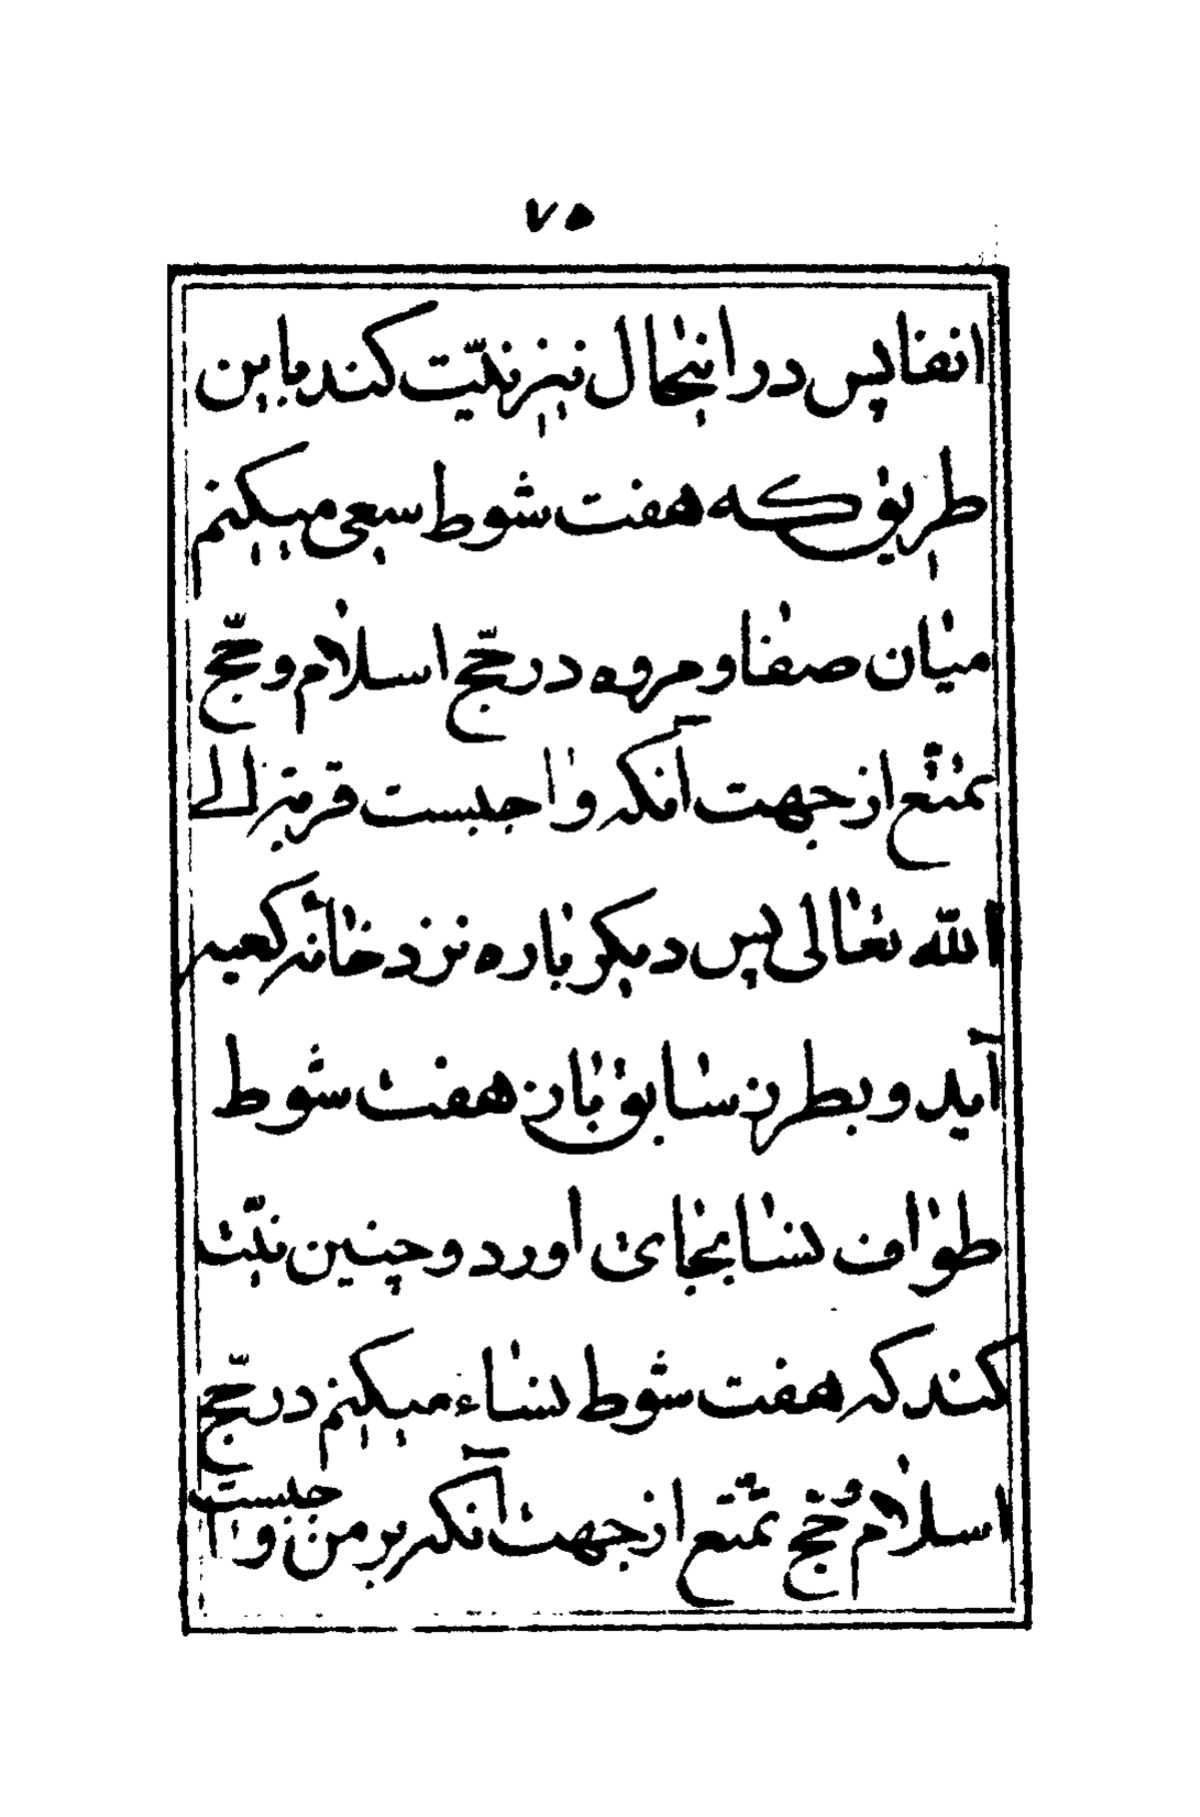 ۷۵
انفا پس در اینحال نیز نیّت کند باین
طریق که هفت شوط سعی میکنم
میان صفا و مروه در حجّ اسلام و حجّ
تمتّع از جهت آنکه واجبست قربة الی
الله تعالی پس دیکر باره نزد خانهٔ کعبه
آید و بطرز سابق باز هفت شوط
طواف نسا بجای اورد و چنین نیّت
کند که هفت شوط نساء میکنم در حجّ
اسلام و حج تمتع از جهت آنکه بر من واجبست